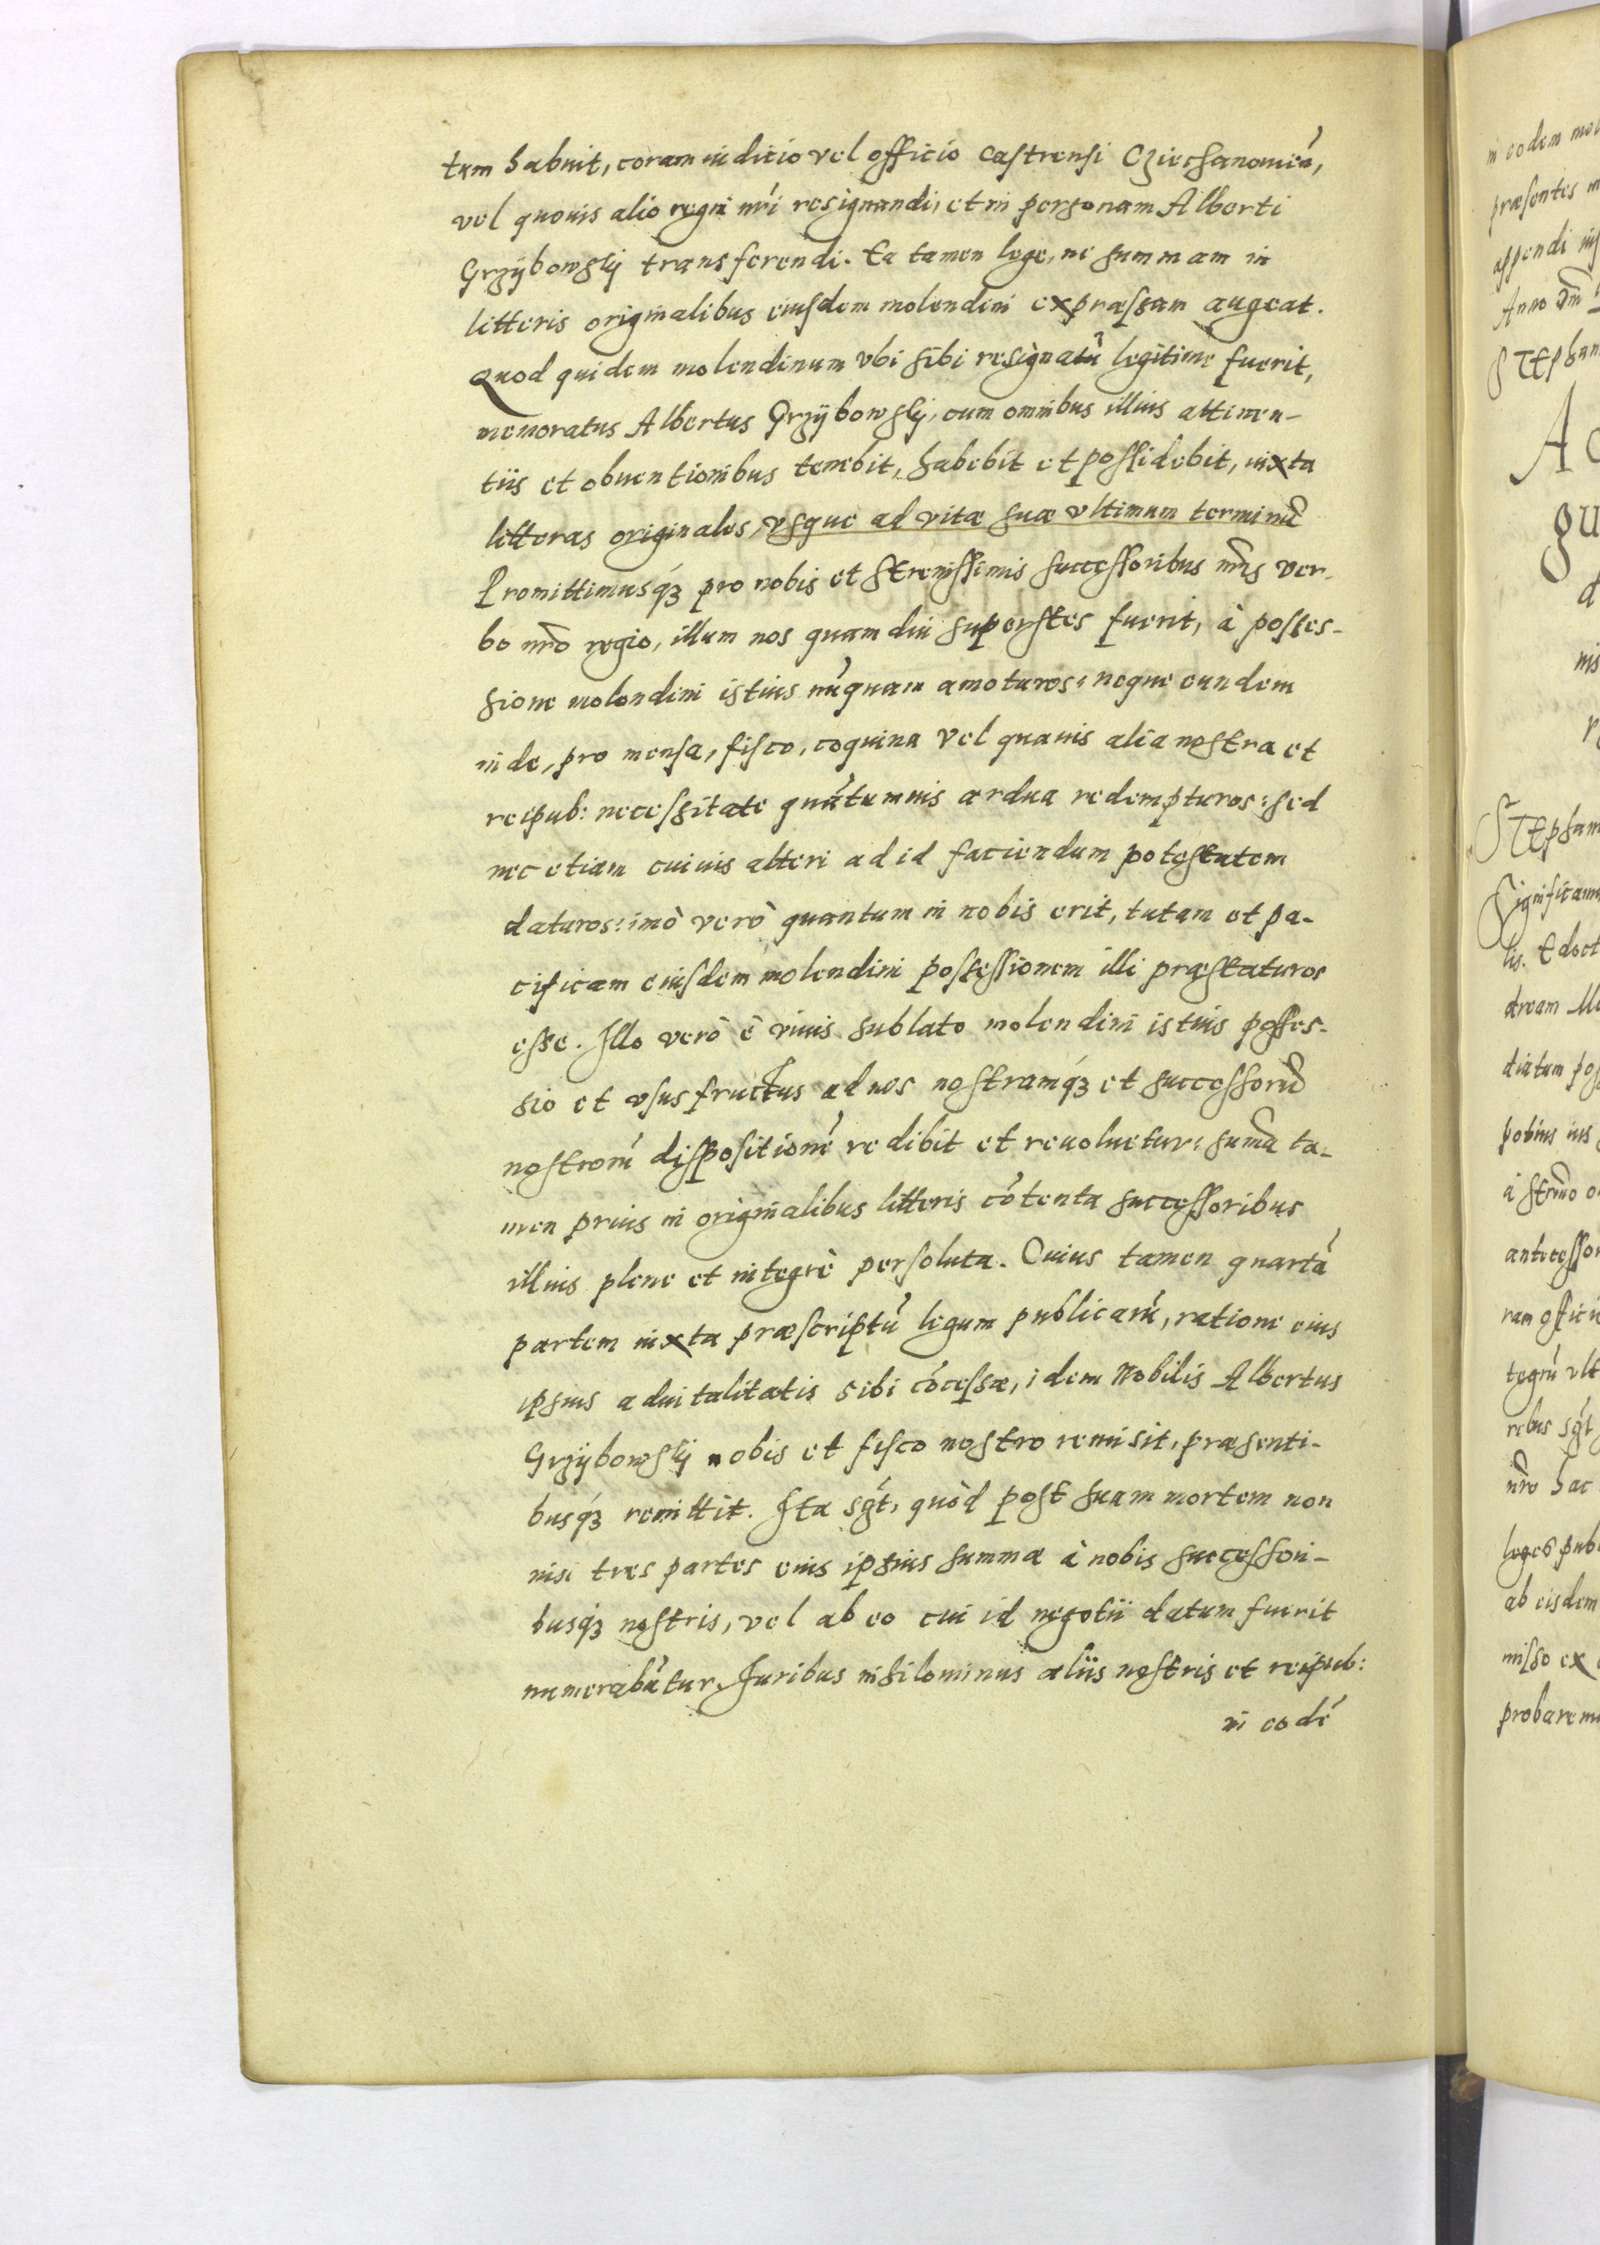 tum habuit, coram iuditio vel officio castrensi Cziechanouien̄,
vel quouis alio regni nr̄i resignandi, et in personam Alberti
Grzÿbowsky transferendi. Ea tamen lege, ne summam in
litteris originalibus eiusdem molendini expræssam augeat.
Quod quidem molendinum vbi sibi resignatū legitime fuerit,
memoratus Albertus Grzÿbowsky, cum omnibus illius attinen-
tiis et obuentionibus tenebit, habebit et possidebit, iuxta
litteras originales, vsque ad vitæ suæ vltimum terminū
Promittimusq́ꝫ pro nobis et Serenissimis successoribus nr̄is ver-
bo nr̄o regio, illum nos quam diu superstes fuerit, à posses-
sione molendini istius nūquam amoturos: neque eundem
inde, pro mensa, fisco, coquina vel quauis alia nostra et
reipub: necessitate quātumuis ardua redempturos: sed
nec etiam cuiuis alteri ad id faciendum potestatem
daturos: imò verò quantum in nobis erit, tutam et pa-
cificam eiusdem molendini possessionem illi præstaturos
esse. Illo verò è viuis sublato molendini istius posses-
sio et vsusfructus ad nos nostramq́ꝫ et successorū
nostrorū dispositionē redibit et reuoluetur: sum̄a ta-
men prius in originalibus litteris cōtenta successoribus
illius plene et integrè persoluta. Cuius tamen quartā
partem iuxta præscriptū legum publicarū, ratione eius
ipsius aduitalitatis sibi cōcessæ, idem Nobilis Albertus
Grzÿbowsky nobis et fisco nostro remisit, præsenti-
busq́ꝫ remittit. Ita sḡt, quòd post suam mortem non
nisi tres partes eius ipsius summæ à nobis successori-
busq́ꝫ nostris, vel ab eo cui id negotii datum fuerit
numerabūtur. Iuribus nihilominus aliis nostris et reipub:
in eodē
in eodem mo
præsentes m
appendi
Anno Dn̄i
STEphan
A
gu
d
nis
STEphan
Significam
lis. Edoct
dream
diatum pos
potius ius
à Serm̄o
antecessor
ram offici
tegrū vlt
rebus sḡt
nr̄o hac
leges pub
ab eisdem
misso ex
probarem